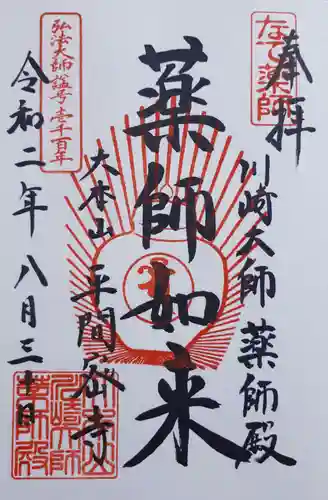 奉拝
なで薬師
川崎大師 薬師殿
薬師如来
大本山 平間寺
弘法大師諡号壱千百年
令和二年八月三十日
川崎大師薬師殿